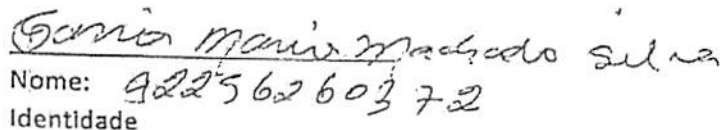 Maria Machado Silva
Nome: 92256260372
Identidade